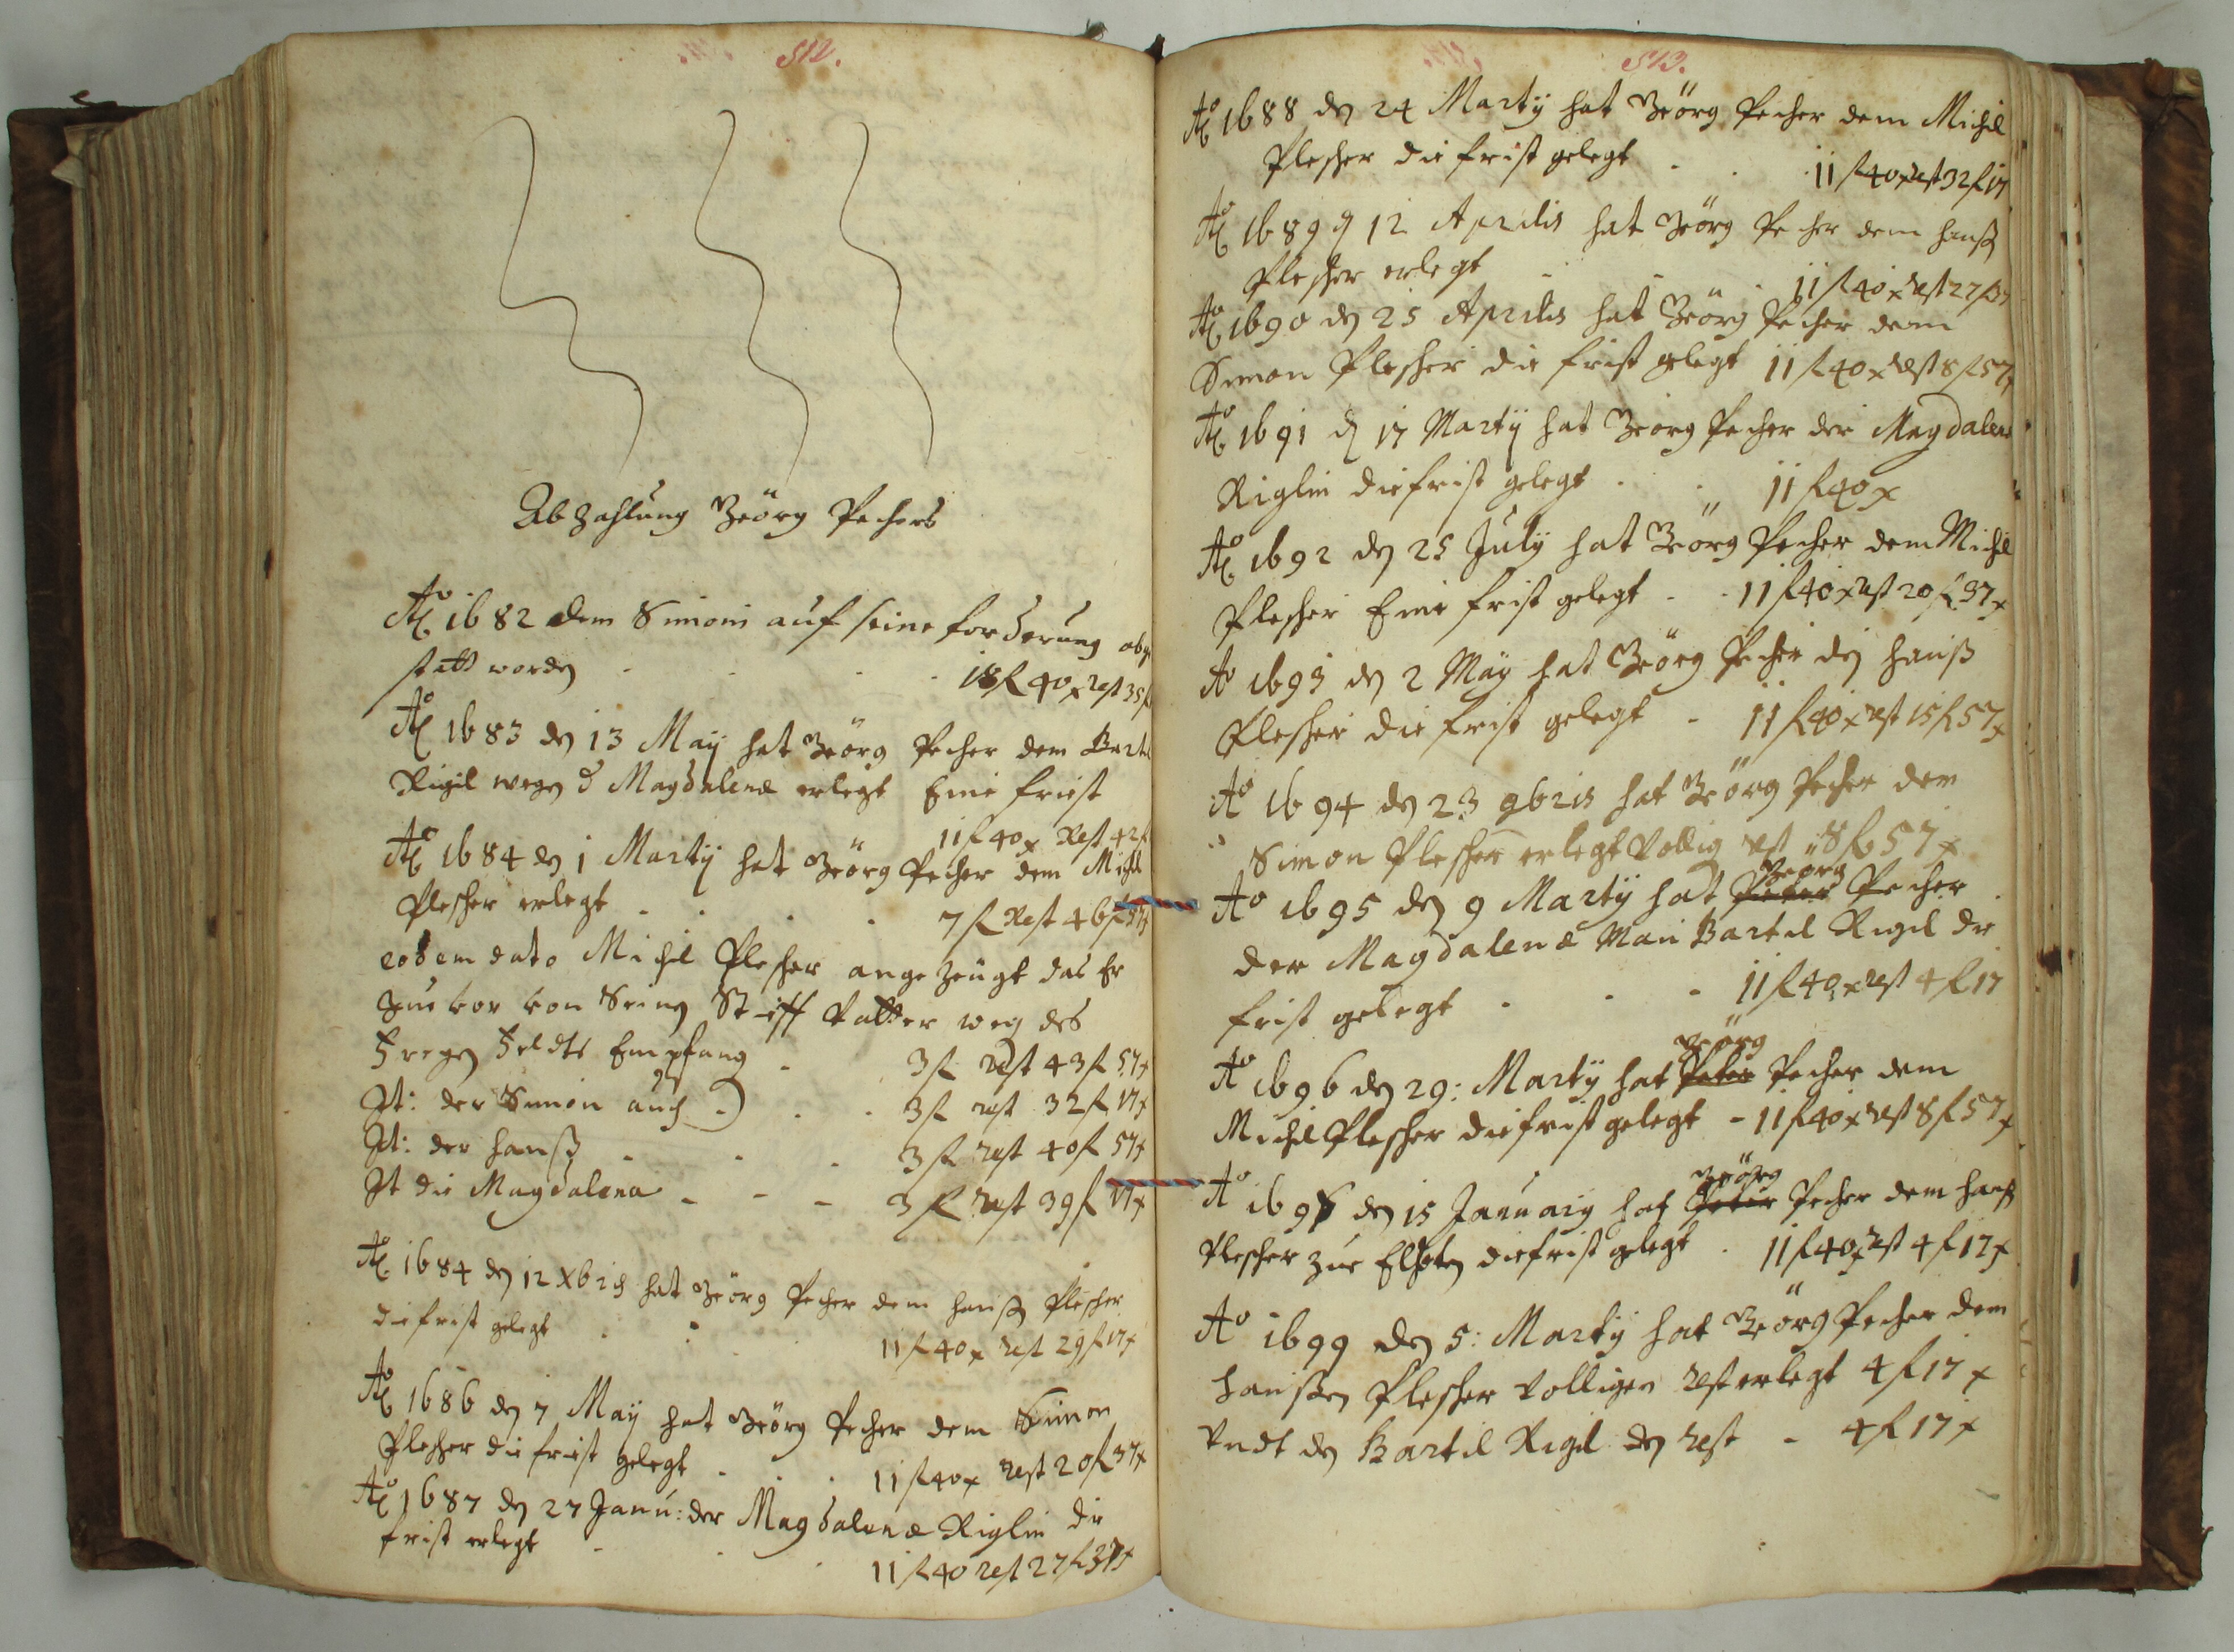 512.
Abzahlung Geörg Pechers
Ao 1682 dem Simoni auf seine forderung abge
statt worden 18 fl 40 x rest 35 fl
Ao 1683 den 13 Maÿ hat Geörg Pecher dem Bartl
Rigil wegen d Magdalenæ erlegt Eine frist
11 fl 40 x Rest 42 fl
Ao 1684 den 1 Martÿ hat Geörg Pecher dem Michl
Plescher erlegt 7 fl Rest 46 fl 57 x
eodem dato Michel Plescher angezeugt das Er
zuevor von Seinen Stiff Vatter weg des
Empfang 3 fl rest 43 fl 57 x
It: der Simon auch 3 fl rest 32 fl 17 x
It: der Hanß 3 fl rest 40 fl 57 x
It die Magdalena 3 fl rest 39 fl 17 x
Ao 1684 den 12 Xbris hat Geörg Pecher dem Hanß Plescher
die frist gelegt 11 fl 40 x rest 29 fl 17 x
Ao 1686 den 7 Maÿ hat Geörg Pecher dem Simon
Plescher die frist gelegt 11 fl 40 x rest 20 fl 37 x
Ao 1687 den 27 Janu: der Magdalenæ Riglin die
frist erlegt 11 fl 40 rest 27 fl 37 x
513.
Ao 1688 den 24 Martÿ hat Geörg Pecher dem Michel
Plescher die frist gelegt 11 fl 40 x rest 32 fl 17
Ao 1689 d 12 Aprilis hat Geörg Pecher dem Hanß
Plescher erlegt 11 fl 40 x rest 27 fl 37
Ao 1690 den 25 Aprilis hat Geörg Pecher dem
Simon Plescher die frist gelegt 11 fl 40 x rest 8 fl 57 x
Ao 1691 d 17 Martÿ hat Geörg Pecher der Magdalena
Riglin die frist gelegt 11 fl 40 x
Ao 1692 den 25 Julÿ hat Geörg Pecher dem Michel
Plescher Eine frist gelegt 11 fl 40 x rest 20 fl 37 x
Ao 1693 den 2 Maÿ hat Geörg Pecher den Hanß
Plescher die frist gelegt 11 fl 40 x rest 15 fl 57 x
Ao 1694 den 23 9bris hat Geörg Pecher dem
Simon Plescher erlegt Vollig rest 8 fl 57 x
Geörg
Ao 1695 den 9 Martÿ hat Peter Pecher
der Magdalenæ Man Bartel Rigil die
frist gelegt 11 fl 40 x rest 4 fl 17
Geörg
Ao 1696 den 29: Martÿ hat Peter Pecher dem
Michel Plescher die frist gelegt 11 fl 40 x rest 8 fl 57 x
Geörg
Ao 1698 den 15 Januarÿ hat Peter Pecher dem Hanß
Plescher zue die frist gelegt 11 fl 40 x rest 4 fl 17 x
Ao 1699 den 5: Martÿ hat Geörg Pecher dem
Hanßen Plescher volligen rest erlegt 4 fl 17 x
Vndt den Bartil Rigil den rest 4 fl 17 x